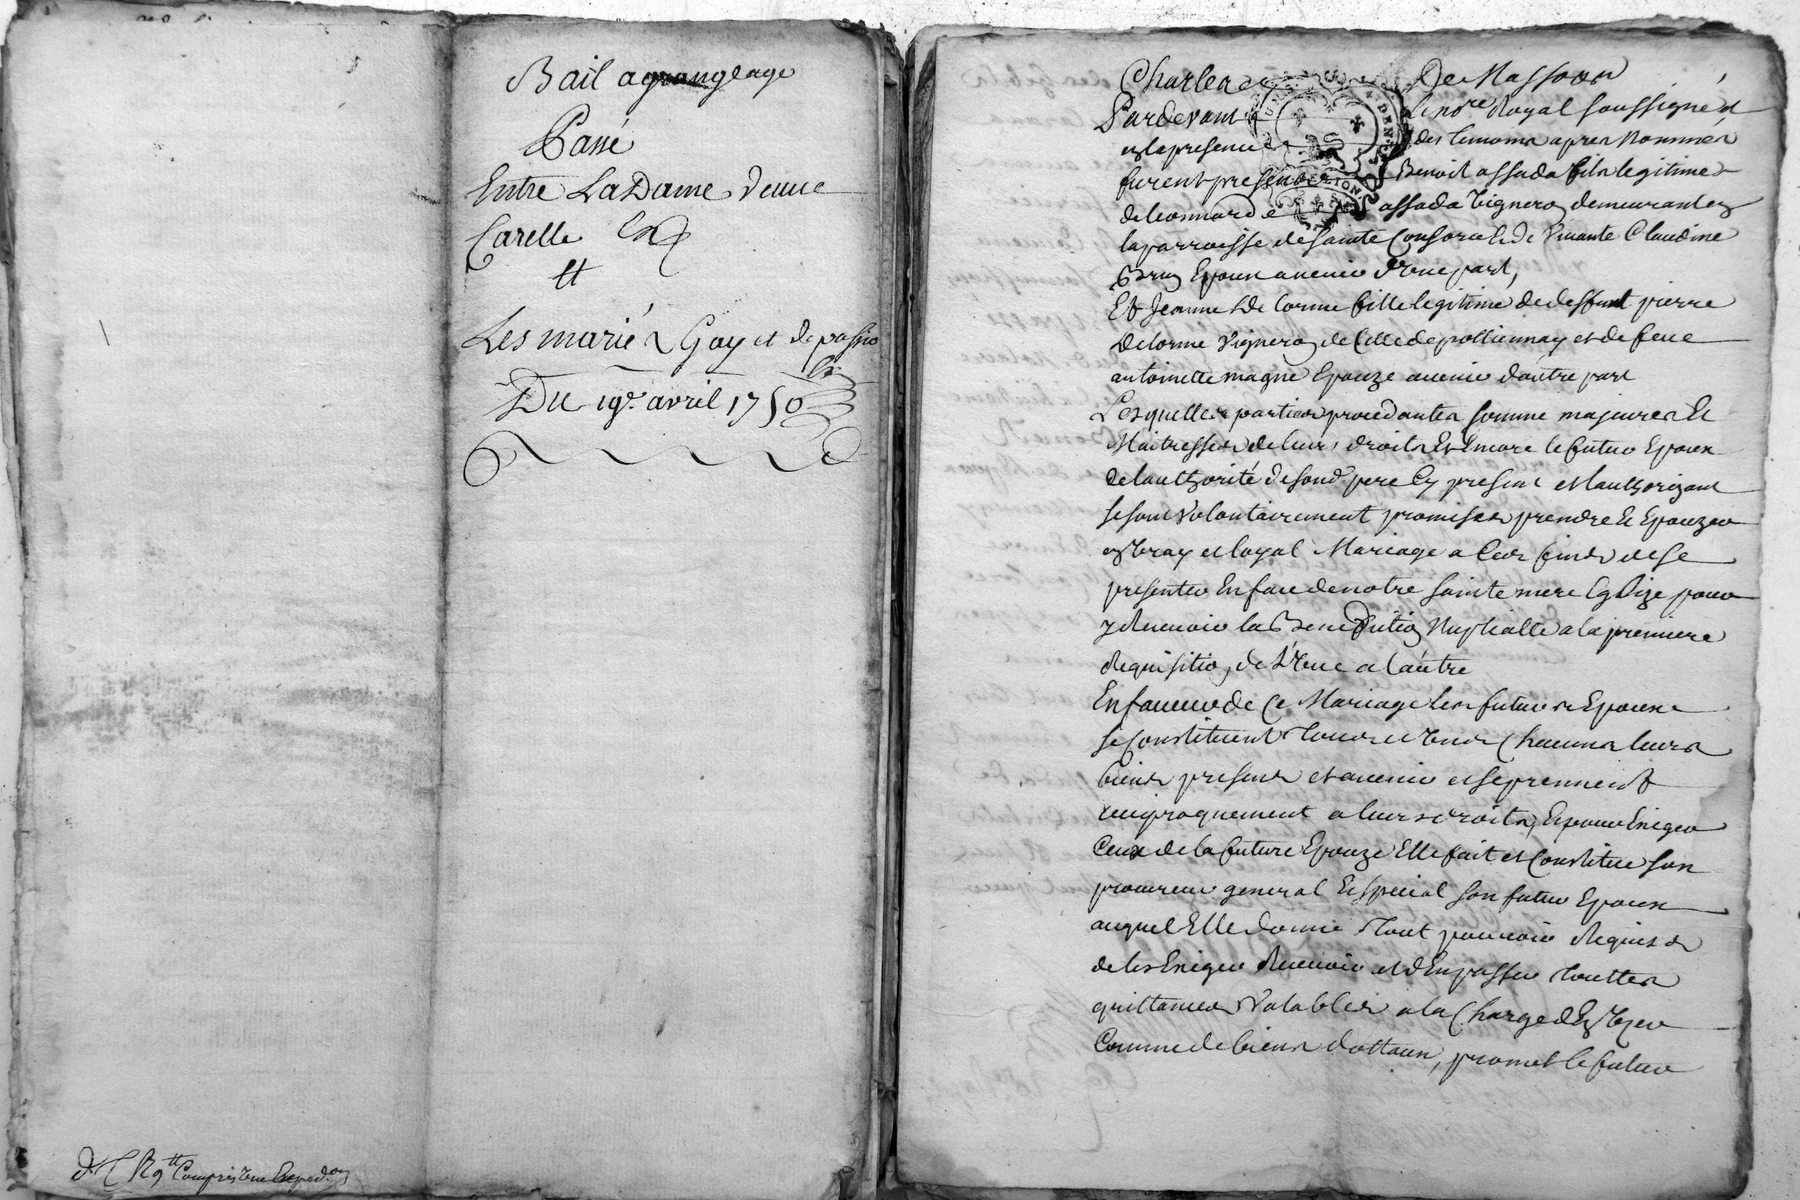 Bail agrangeage
Passé
Entre La Dame veuve
Carelle
Et
Les mariés Gay et de passio
Du 19e avril 1750
d. C Compris une Expedon
Charles De Masson
Pardevant Le nore Royal soussigné et
en la presence des temoins apres nommés
furent presents Benoit assada fils legitime
de leonnard assada Vigneron demeurant en
la parroisse de sainte Consorce et de vivante Claudine
Brun Epoux avenir d'une part,
Et Jeanne De lorme fille legitime de deffunt pierre
Delorme Vigneron de Celle de pollionnay et de feue
antoinette magne Epouze avenir d'autre part
Lesquelles parties procedantes somme majeures Et
Maitresses de leurs droits Et Encore le futur Epoux
de lauthorité de sond. pere Cy present et lauthorizant
se sont volontairement promises prendre Et Epouzer
en vray et loyal Mariage a Ces fins de se
presenter En face de notre sainte mere Eglize pour
y Recevoir la Benediction Nuptialle a la premiere
Requisition de L'une a l'autre
En faveur de Ce Mariage les futurs Epoux
se Constituent tous et uns Chacuns leurs
biens presens et avenir et se prennent
reciproquement a leurs droits, Et pour Exiger
Ceux de la future Epouze Elle fait et Constitue son
procureur general Et special son futur Epoux
auquel Elle donne tout pouvoir Requis
de les Exiger Recevoir et d'En passer touttes
quittances Valables a la Charge d'En Uzer
Comme de biens dottaux, promet le futur